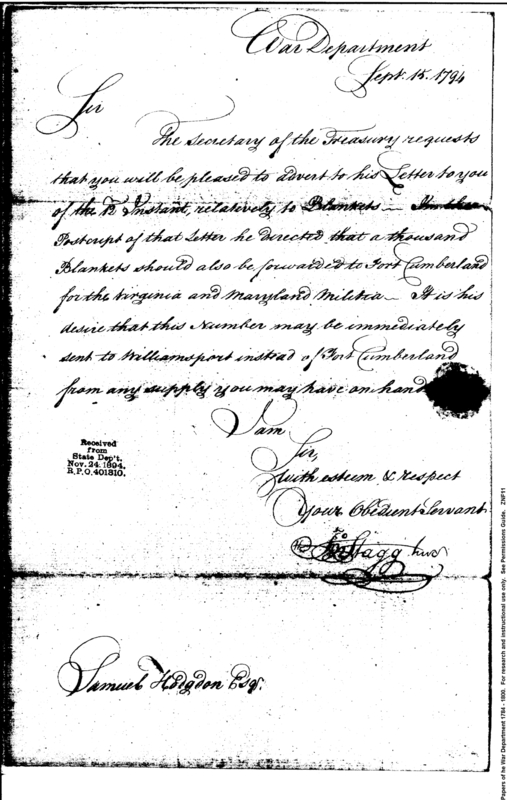 War Department
Sept. 15. 1794
Sir
The Secretary of the Treasury requests
that you will be pleased to advert to his Letter to you
of the 12 Instant, relatively to Blankets — In the
Postcript of that Letter he directed that a thousand
Blankets should also be forwarded to Fort Cumberland
for the Virginia and Maryland Militia — It is his
desire that this Number may be immediately
sent to Williamsport instead of Fort Cumberland
from any supply you may have on hand
I am
Sir,
with esteem & respect
Your Obedient Servant
Jno Stagg Junr
Received
from
State Dep't.
Nov. 24. 1894.
R.P.O. 401310.
Samuel Hodgdon Esqr.
Papers of he War Department 1784 - 1800. For research and instructional use only. See Permissions Guide. ZNF11